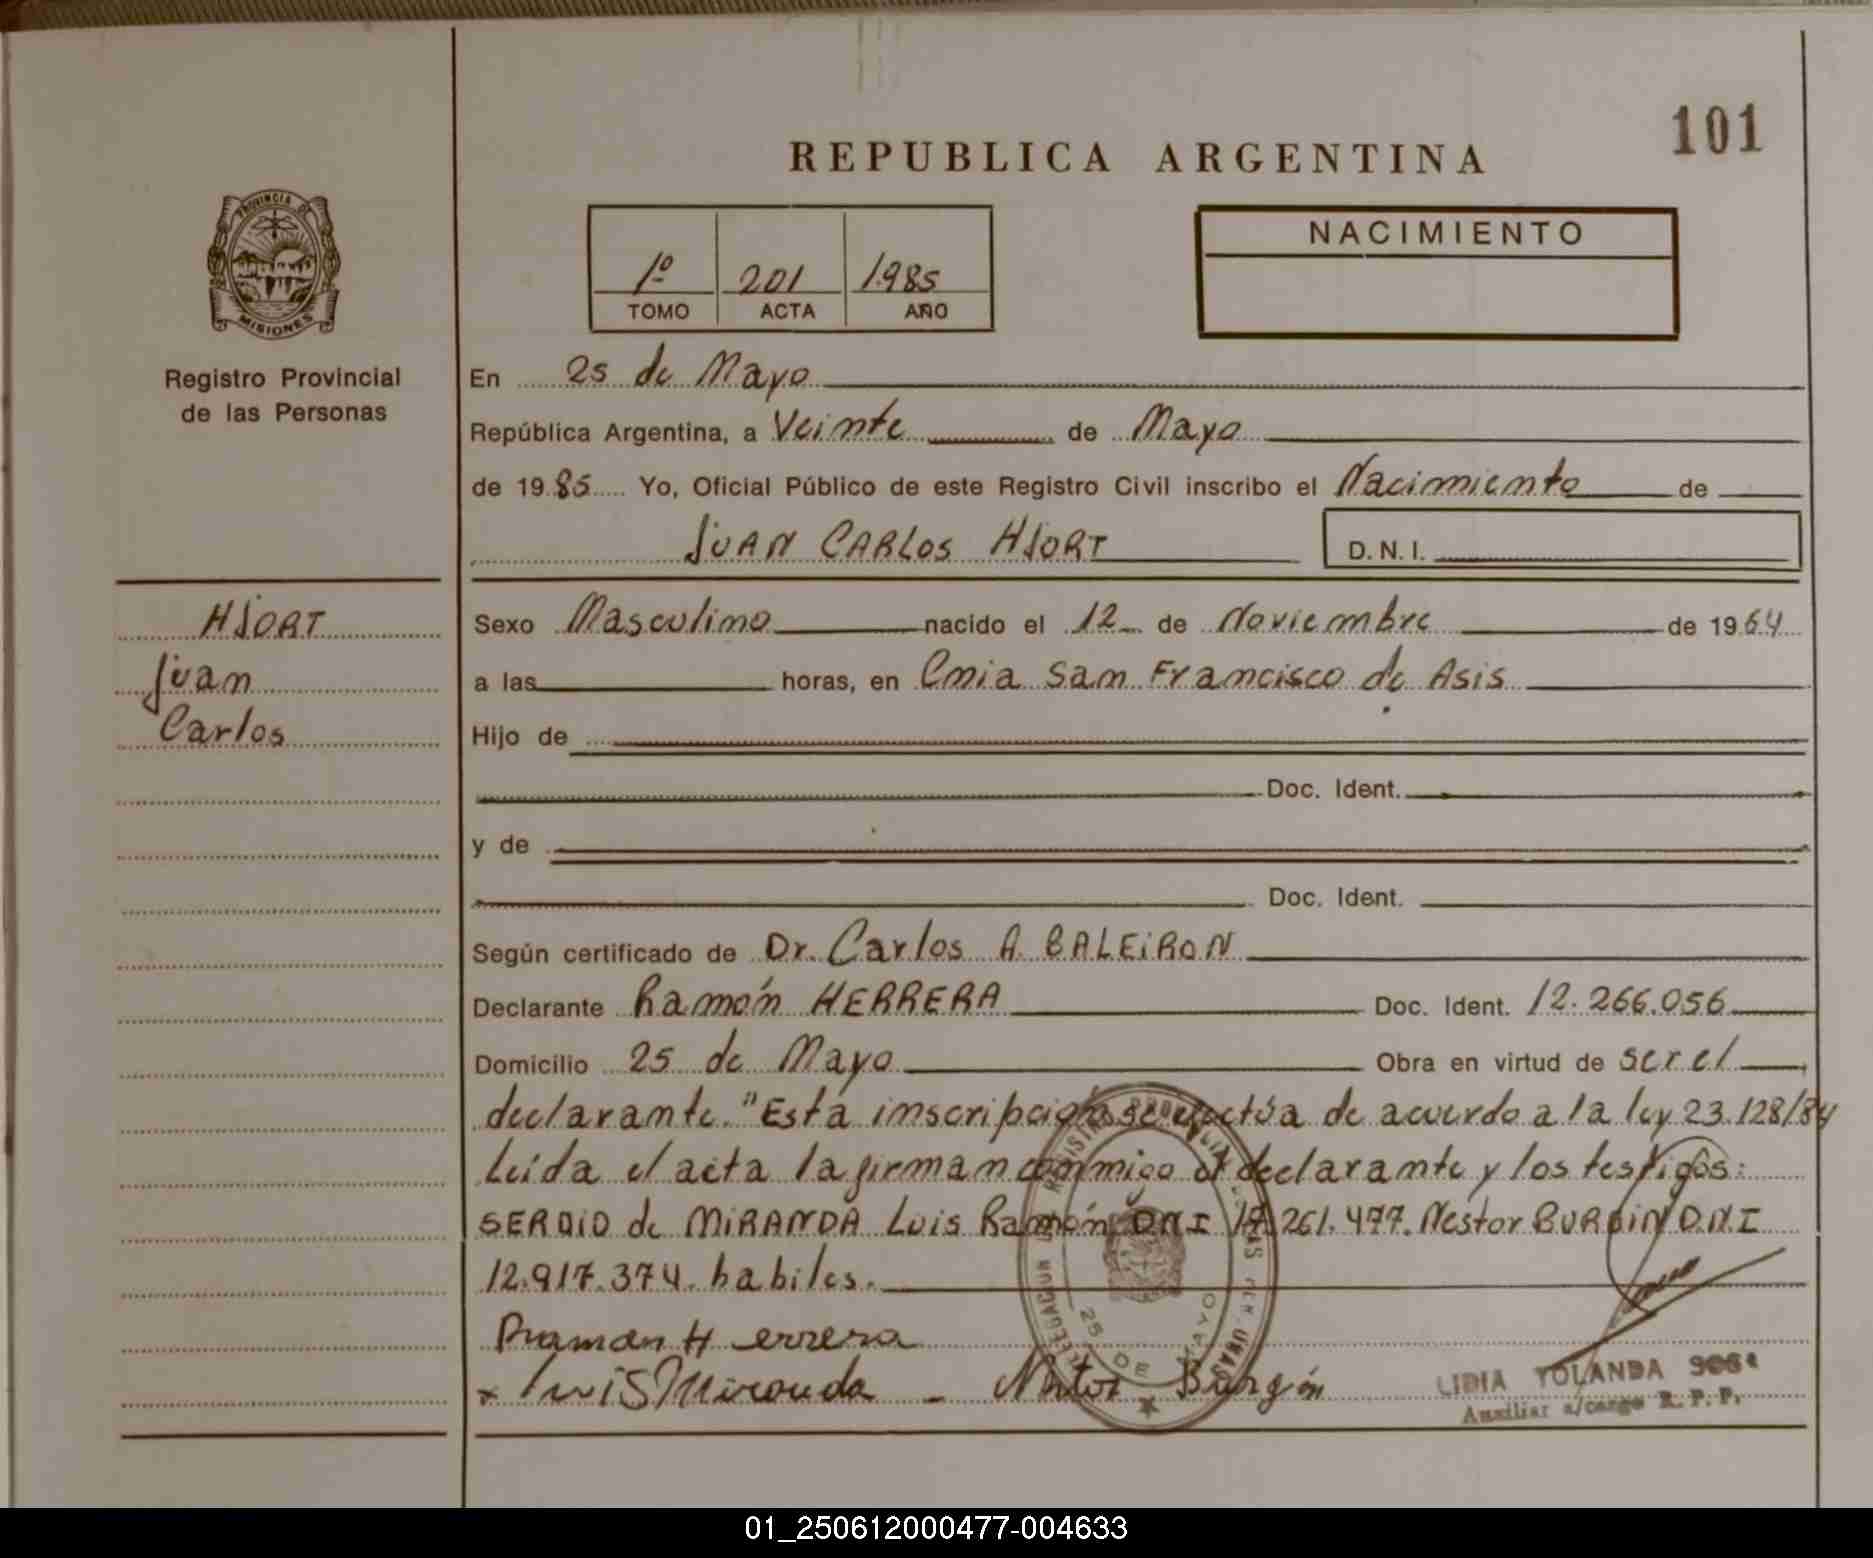 101
REPUBLICA ARGENTINA
PROVINCIA DE
MISIONES
Registro Provincial
de las Personas
1º 201 1985
TOMO ACTA AÑO
NACIMIENTO
En 25 de Mayo
República Argentina, a Veinte de Mayo
de 1985 Yo, Oficial Público de este Registro Civil inscribo el Nacimiento de
JUAN CARLOS HJORT D.N.I.
HJORT
Juan
Carlos
Sexo Masculino nacido el 12 de Noviembre de 1964
a las horas, en Cnia San Francisco de Asis
Hijo de
Doc. Ident.
y de
Doc. Ident.
Según certificado de Dr. Carlos A. BALEIRON
Declarante Ramón HERRERA Doc. Ident. 12.266.056
Domicilio 25 de Mayo Obra en virtud de ser el
declarante. "Esta inscripción se efectúa de acuerdo a la ley 23.128/84
Leída el acta la firman conmigo el declarante y los testigos:
de MIRANDA Luis Ramón DNI 261.477. Nestor D.N.I
12.917.374. habiles.
Ramon Herrera
x Luis Miranda - Nestor Burgin
25 DE MAYO
LIDIA YOLANDA
Auxiliar a/cargo R. P. P.
01_250612000477-004633